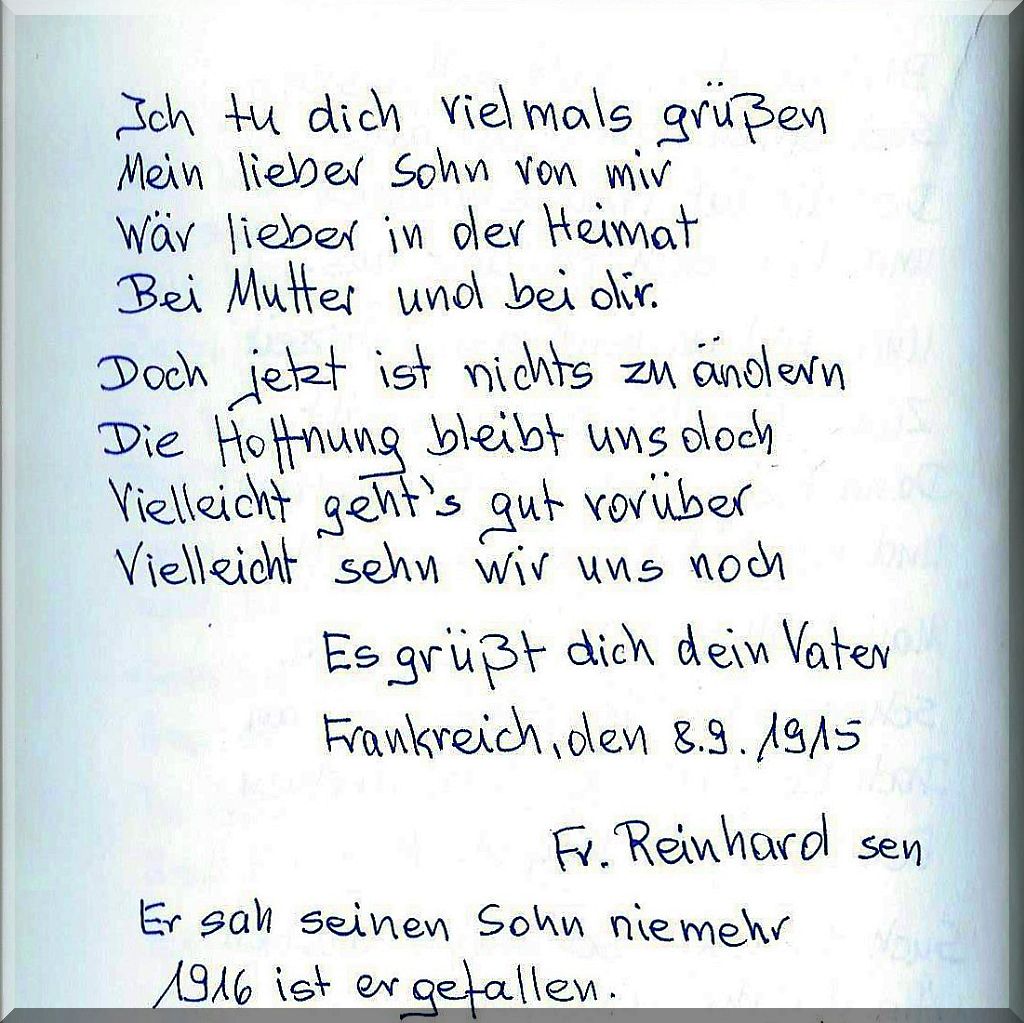 Ich tu dich vielmals grüßen
Mein lieber Sohn von mir
Wär lieber in der Heimat
Bei Mutter und bei dir.
Doch jetzt ist nichts zu ändern
Die Hoffnung bleibt uns doch
Vielleicht geht's gut vorüber
Vielleicht sehn wir uns noch
Es grüßt dich dein Vater
Frankreich, den 8.9.1915
Fr. Reinhard sen
Er sah seinen Sohn niemehr
1916 ist er gefallen.